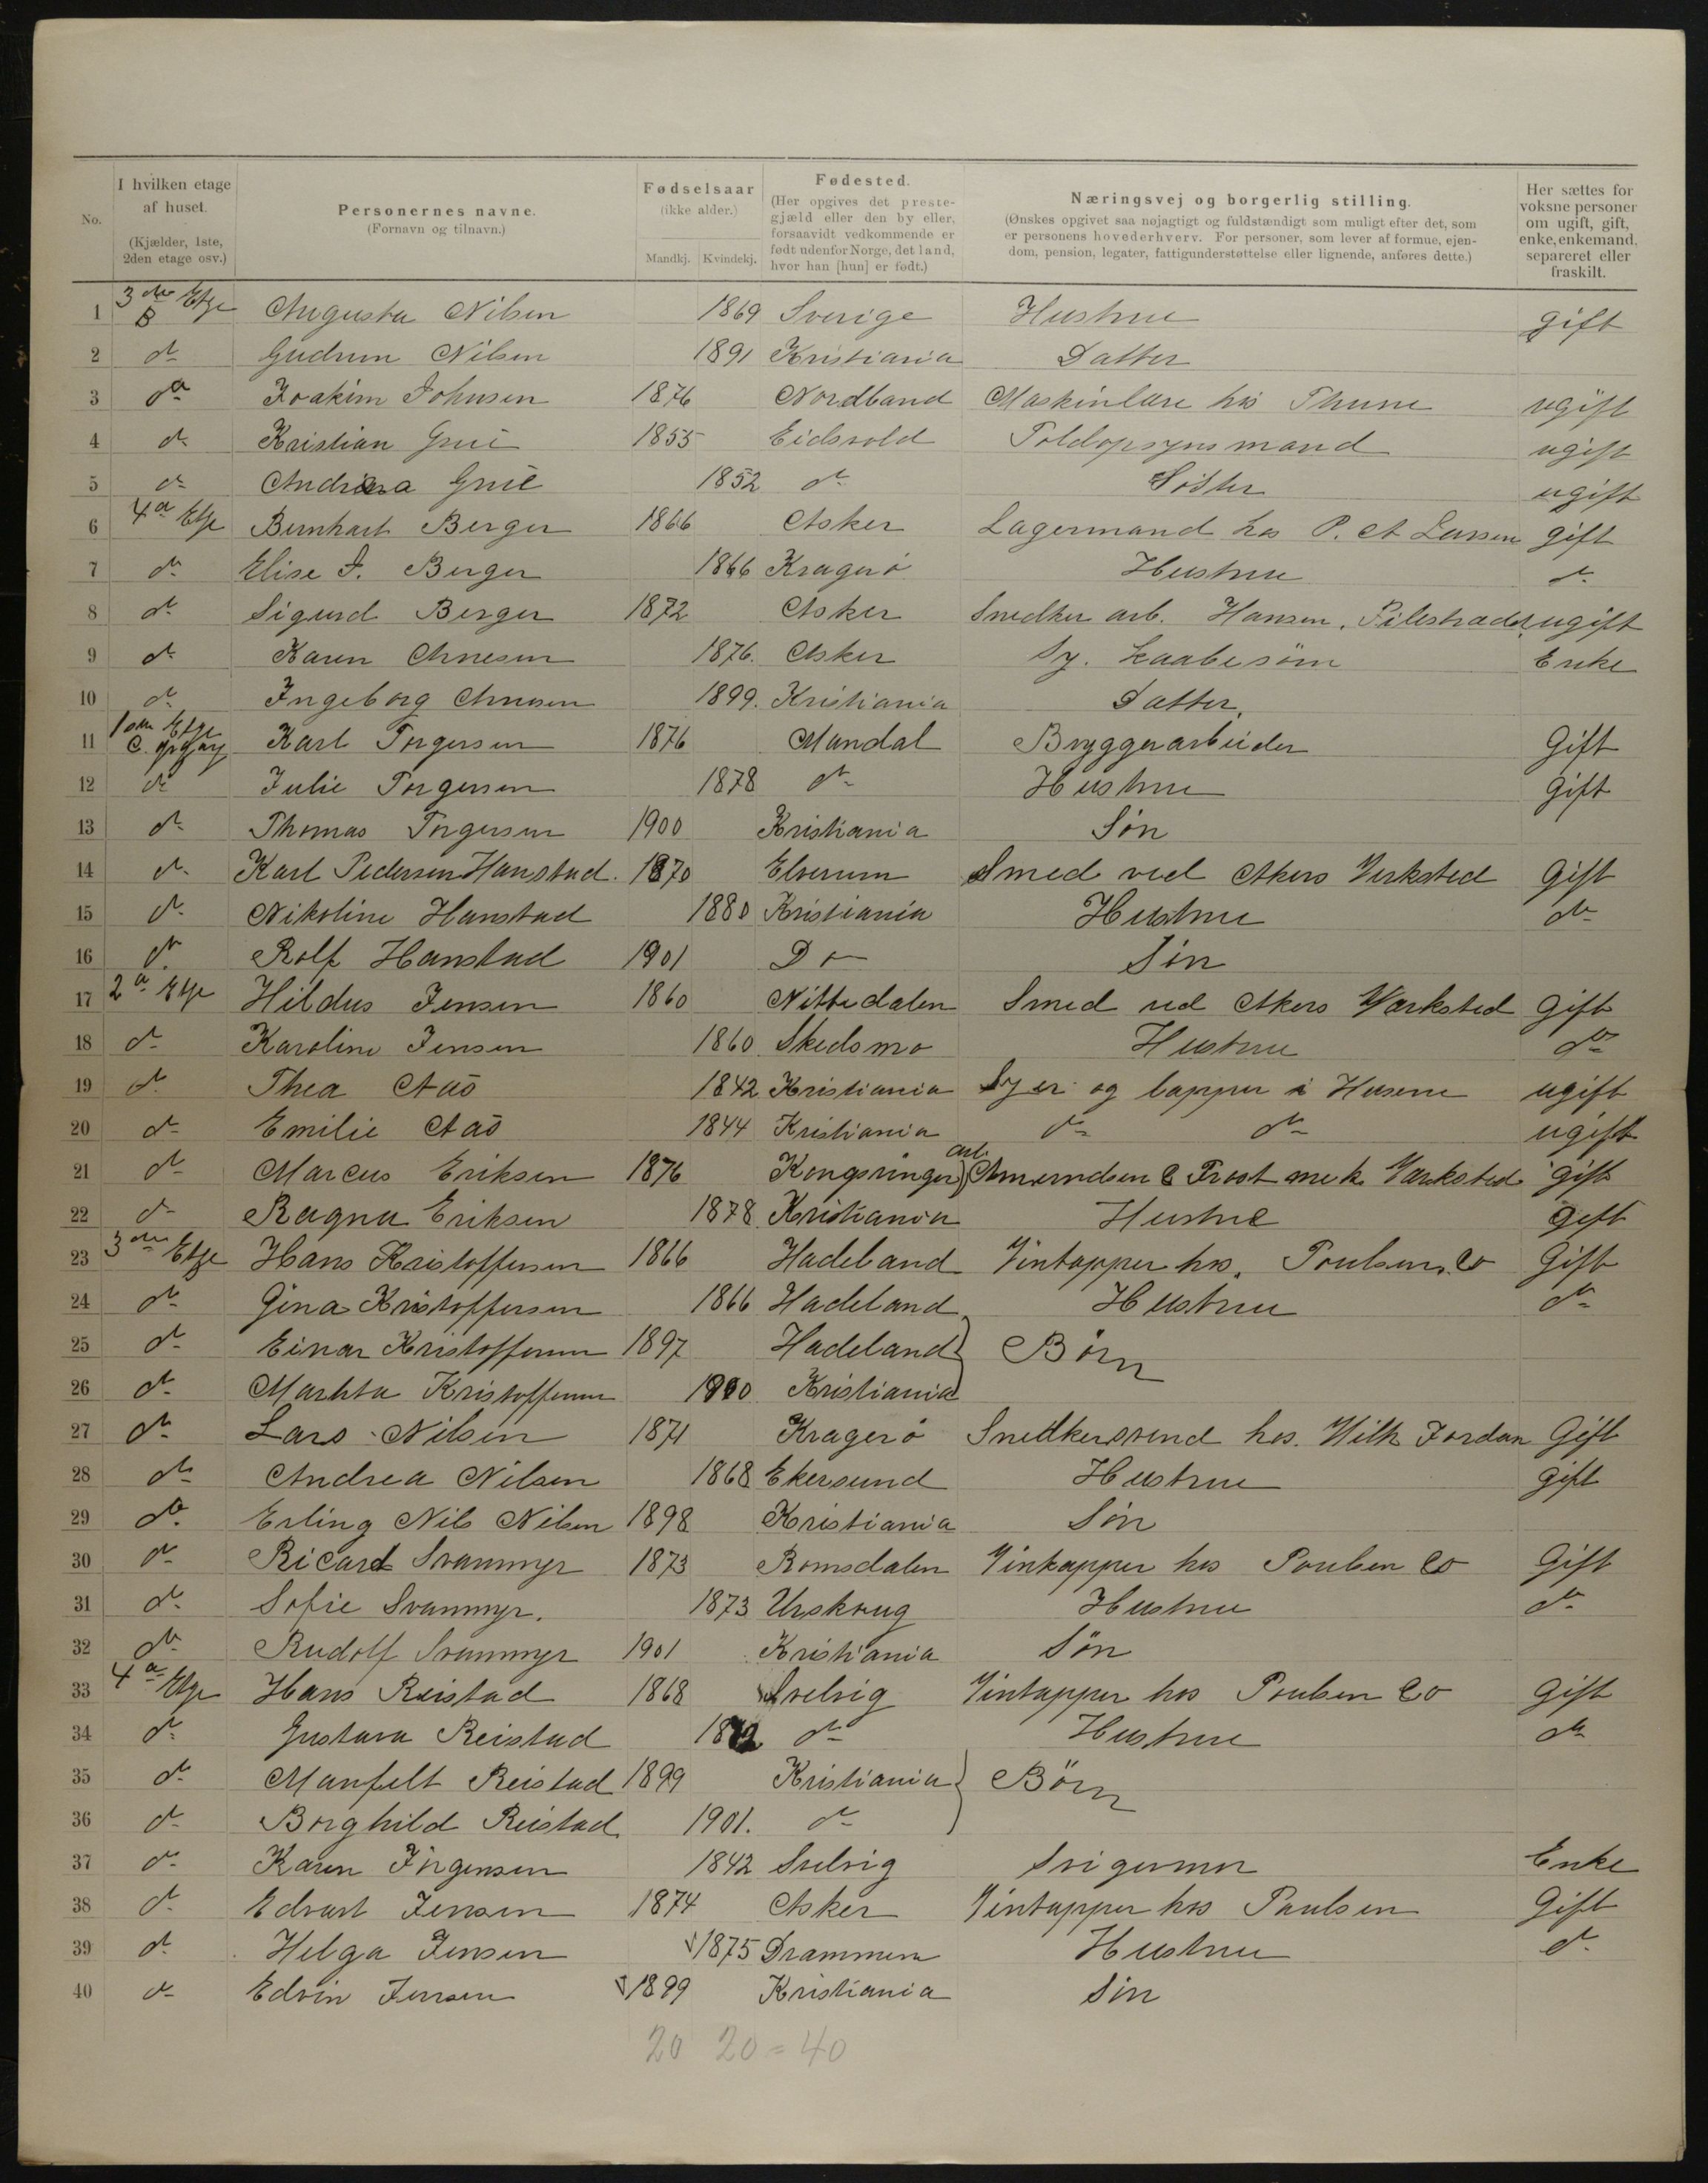 No.
I hvilken etage
af huset.
(Kjælder, 1ste,
2den etage osv.)
Personernes navne.
(Fornavn og tilnavn.)
Fødselsaar
(ikke alder.)
Mandkj. Kvindekj.
Fødested.
(Her opgives det preste-
gjæld eller den by eller,
forsaavidt vedkommende er
født udenfor Norge, det land,
hvor han [hun] er født.)
Næringsvej og borgerlig stilling.
(Ønskes opgivet saa nøjagtigt og fuldstændigt som muligt efter det, som
er personens hovederhverv. For personer, som lever af formue, ejen-
dom, pension, legater, fattigunderstøttelse eller lignende, anføres dette.)
Her sættes for
voksne personer
om ugift, gift,
enke, enkemand,
separeret eller
fraskilt.
1 3die Etge B Augusta Nilsen 1869 Sverige Hustru gift
2 do Gudrun Nilsen 1891 Kristiania Datter
3 do Joakim Johnsen 1876 Nordland Maskinlære hos Thune ugift
4 do Kristian Grue 1855 Eidsvold Toldopsynsmand ugift
5 do Andrea Grue 1852 do Søster ugift
6 4de Etge Bernhart Berger 1866 Asker Lagermand hos P. A Larsen gift
7 do Elise J. Berger 1866 Kragerø Hustru do
8 do Sigurd Berger 1872 Asker Snedker arb. Hansen, Pilestrædet ugift
9 do Karen Arnesen 1876. Asker Sy. Kaabesøm Enke
10 do Ingeborg Arnesen 1899. Kristiania Datter.
11 1ste Etge C. opgang Karl Torgersen 1876 Mandal Bryggeriarbeider Gift
12 do Julie Torgersen 1878 do Hustru Gift
13 do Thomas Torgersen 1900 Kristiania Søn
14 do Karl Pedersen Hanstad. 1870 Elverum Smed ved Akers Verksted Gift
15 do Nikoline Hanstad 1880 Kristiania Hustru do
16 do Rolf Hanstad 1901 Do Søn
17 2den Etge Hildus Jensen 1860 Nittedalen Smed ved Akers Værksted Gift
18 do Karoline Jensen 1860 Skedsmo Hustru do
19 do Thea Aas 1842 Kristiania Syer og lapper i Husene ugift
20 do Emilie Aas 1844 Kristiania do do ugift
21 do Marcus Eriksen 1876 Kongsvinger arb. Amundsen & Frost mek Værksted gift
22 do Ragna Eriksen 1878 Kristiania Hustru gift
23 3die Etge Hans Kristoffersen 1866 Hadeland Vintapper hos. Poulsen, Co Gift
24 do Gina Kristoffersen 1866 Hadeland Hustru do
25 do Einar Kristoffersen 1897 Hadeland Børn
26 do Martha Kristoffersen 1900 Kristiania
27 do Lars Nilsen 1871 Kragerø Snedkersvend hos. Wilh Jordan Gift
28 do Andrea Nilsen 1868 Ekersund Hustru gift
29 do Erling Nils Nilsen 1898 Kristiania Søn
30 do Ricard Svanmyr 1873 Romsdalen Vintapper hos Poulsen Co Gift
31 do Sofie Svanmyr. 1873 Urskoug Hustru do
32 do Rudolf Svanmyr 1901 Kristiania Søn
33 4de Etge Hans Reistad 1868 Svelvig Vintapper hos Poulsen Co Gift
34 do Gustava Reistad 1872 do Hustru do
35 do Manfelt Reistad 1899 Kristiania Børn
36 do Borghild Reistad 1901. do
37 do Karen Jørgensen 1842 Svelvig Svigermor Enke
38 do Edvart Jensen 1874 Asker Vintapper hos Paulsen Gift
39 do Helga Jensen 1875 Drammen Hustru do
40 do Edvin Jensen 1899 Kristiania Søn
20 20 = 40